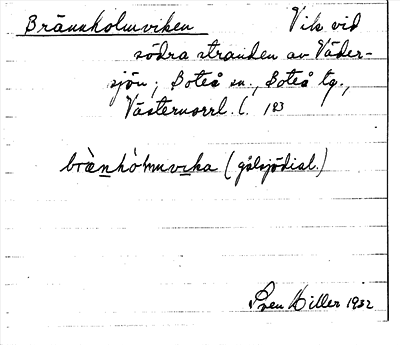 Brännholmviken Vik vid
södra stranden av Väder-
sjön; Boteå sn., Boteå tg.,
Västernorrl. l. 183
bræ̀nhòlmuvika (gålsjödial.)
Sven Hiller 1932